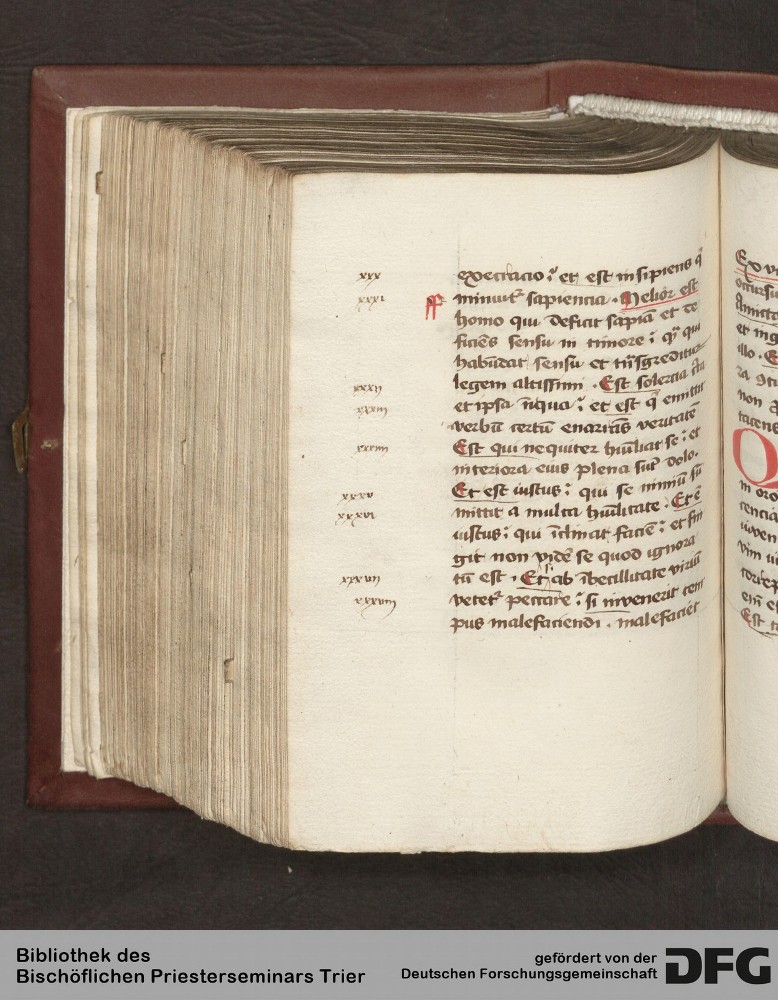 xxx
execracio : et est insipiens q̄
minuit᷑ sapiencia . Melior est
homo qui deficit sapīa et de
ficiēs sensu in timore : qȝ qui
habūdat sensu et trāsgreditur
legem altissimi . Est solercia c̄ta
et ipsa īiqua : et est q̄ emittit
verbū certū enarrās veritatē
Est qui nequiter hūiliat se : et
interiora eius plena sūt dolo .
Et est iustus : qui se nimiū sū
mittit a multa hūilitate . Et ē
iustus : qui īclinat faciē : et fin
git non vidē se quod ignora
tū est . Et si ab ībecillitate viriū
vetet᷑ peccare : si invenerit tem
pus malefaciendi . malefaciet
Ex v
occursu
Amict
et ing
illo . E
non p
tacens
Q
in oro
iuven
vim i
Est t
Bibliothek des
Bischöflichen Priesterseminars Trier
gefördert von der
Deutschen Forschungsgemeinschaft
DFG